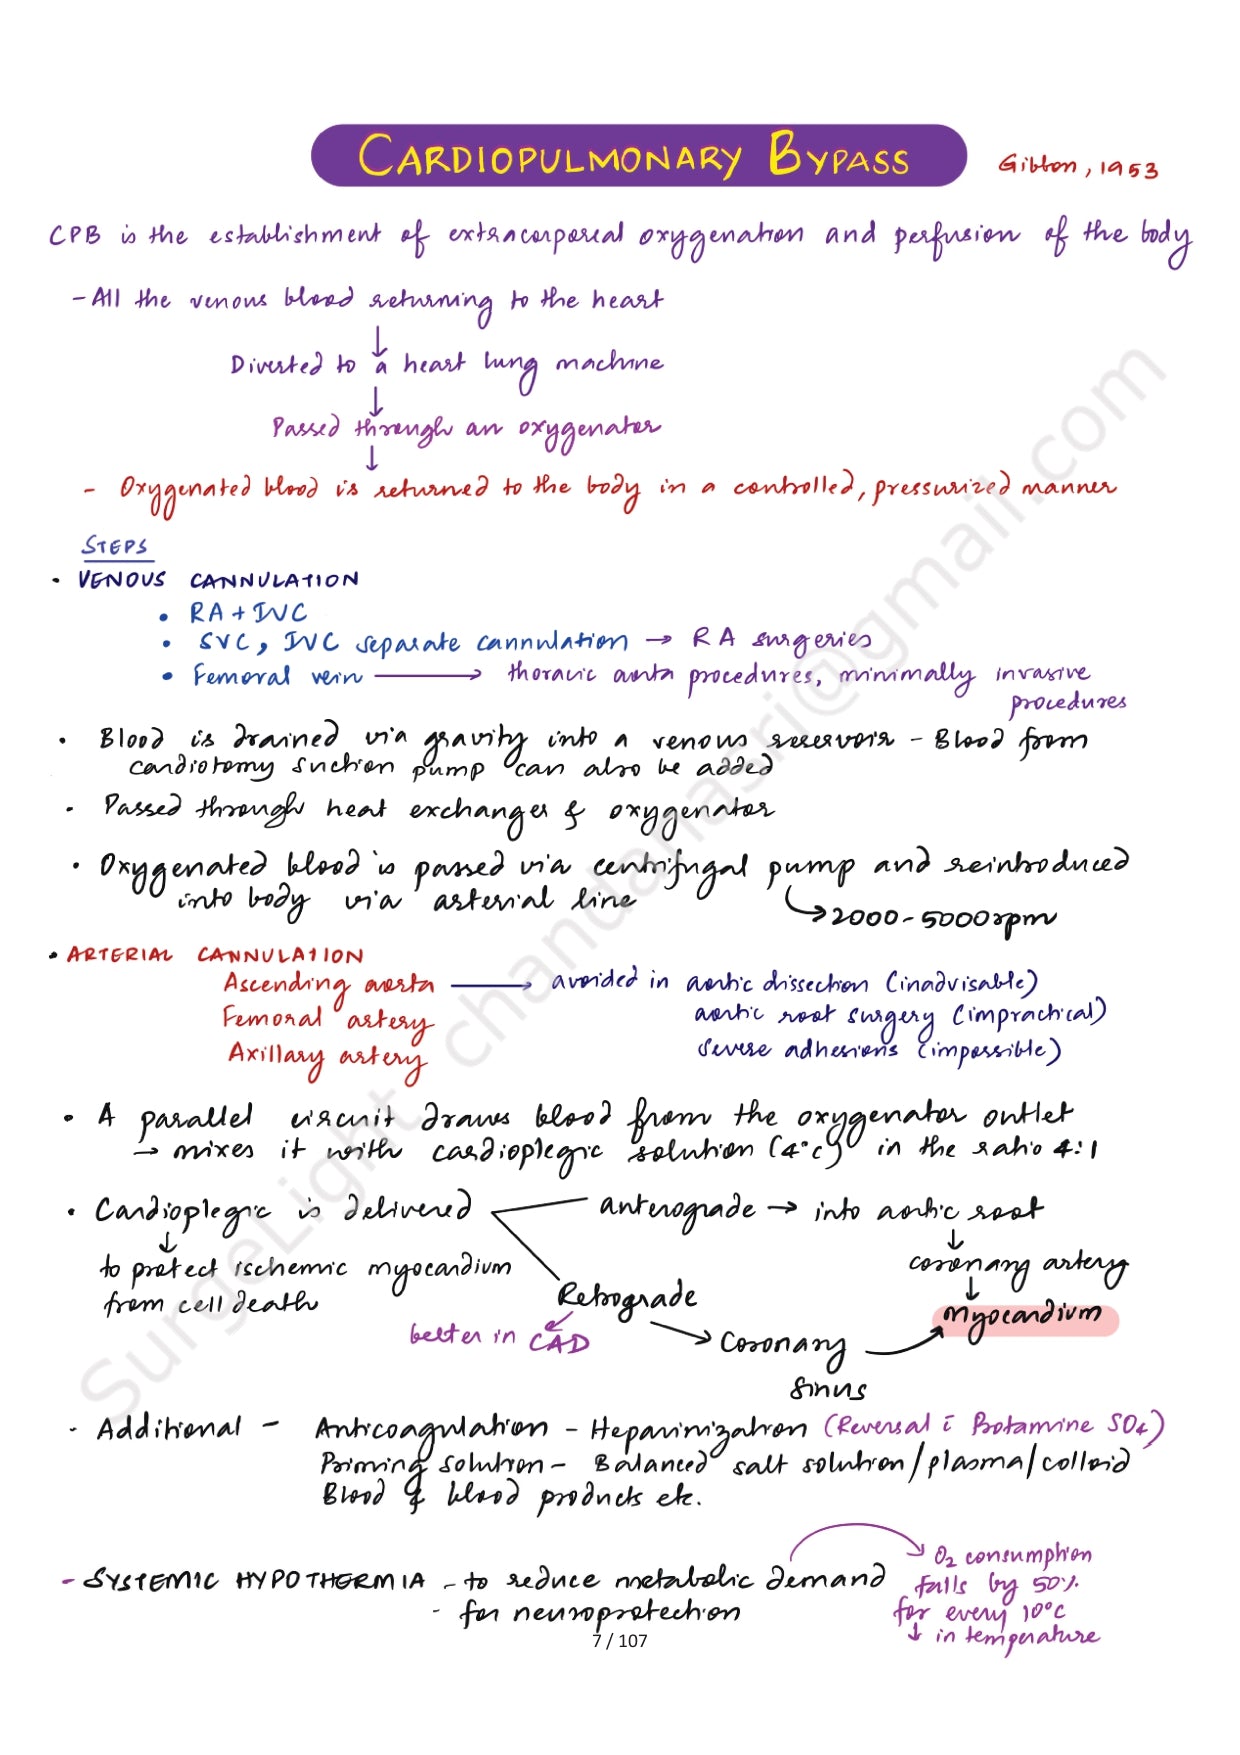 CARDIOPULMONARY BYPASS
Gibbon, 1953
CPB is the establishment of extracorporeal oxygenation and perfusion of the body
- All the venous blood returning to the heart
↓
Diverted to a heart lung machine
↓
Passed through an oxygenator
↓
- Oxygenated blood is returned to the body in a controlled, pressurized manner
STEPS
• VENOUS CANNULATION
• RA + IVC
• SVC, IVC separate cannulation → RA surgeries
• Femoral vein → thoracic aorta procedures, minimally invasive
procedures
• Blood is drained via gravity into a venous reservoir - Blood from
cardiotomy suction pump can also be added
• Passed through heat exchanger & oxygenator
• Oxygenated blood is passed via centrifugal pump and reintroduced
into body via arterial line
→ 2000 - 5000 rpm
• ARTERIAL CANNULATION
Ascending aorta → avoided in aortic dissection (inadvisable)
Femoral artery aortic root surgery (impractical)
Axillary artery severe adhesions (impossible)
• A parallel circuit draws blood from the oxygenator outlet
→ mixes it with cardioplegic solution (4°C) in the ratio 4:1
• Cardioplegic is delivered anterograde → into aortic root
↓ ↓
to protect ischemic myocardium coronary artery
from cell death ↓
Retrograde Myocardium
better in CAD → Coronary
Sinus
• Additional - Anticoagulation - Heparinization (Reversal c̄ Protamine SO4)
Priming solution - Balanced salt solution/plasma/colloid
Blood & blood products etc.
- SYSTEMIC HYPOTHERMIA - to reduce metabolic demand
- for neuroprotection
O2 consumption
falls by 50%
for every 10°C
↓ in temperature
7 / 107
SurgeLight chandanasri@gmail.com